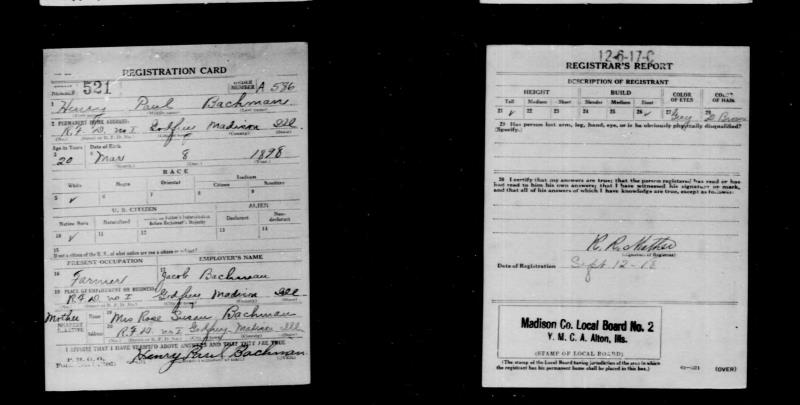 REGISTRATION CARD
521
ORDER NUMBER A 586
1 Henry Paul Bachman
2 PERMANENT HOME ADDRESS:
R.F.D. no I Godfrey Madison Ill
Age in Years
Date of Birth
20 Mar 8 1898
RACE
White Negro Oriental Indian
Citizen
5 ✓ 6 7 8 9
U. S. CITIZEN ALIEN
Native Born Naturalized Declarant Non-declarant
10 ✓ 11 12 13 14
15
If not a citizen of the U. S., of what nation are you a citizen or subject?
PRESENT OCCUPATION EMPLOYER'S NAME
16 Farmer 17 Jacob Bachman
18 PLACE OF EMPLOYMENT OR BUSINESS:
R.F.D. no I Godfrey Madison Ill
Mother
NEAREST RELATIVE
Name 19 Mrs Rose Susan Bachman
Address 20 R.F.D. no I Godfrey Madison Ill
I AFFIRM THAT I HAVE VERIFIED ABOVE ANSWERS AND THAT THEY ARE TRUE
P. M. G. O.
Henry Paul Bachman
12-6-17-C
REGISTRAR'S REPORT
DESCRIPTION OF REGISTRANT
HEIGHT BUILD COLOR OF EYES COLOR OF HAIR
Tall Medium Short Slender Medium Stout
21 ✓ 22 23 24 25 26 ✓ 27 Grey 28 D Brown
29 Has person lost arm, leg, hand, eye, or is he obviously physically disqualified?
(Specify.)
30 I certify that my answers are true; that the person registered has read or has
had read to him his own answers; that I have witnessed his signature or mark,
and that all of his answers of which I have knowledge are true, except as follows:
R. R. Mather
(Signature of Registrar)
Date of Registration Sept. 12-18
Madison Co. Local Board No. 2
Y. M. C. A. Alton, Ills.
(STAMP OF LOCAL BOARD)
(The stamp of the Local Board having jurisdiction of the area in which
the registrant has his permanent home shall be placed in this box.)
(OVER)